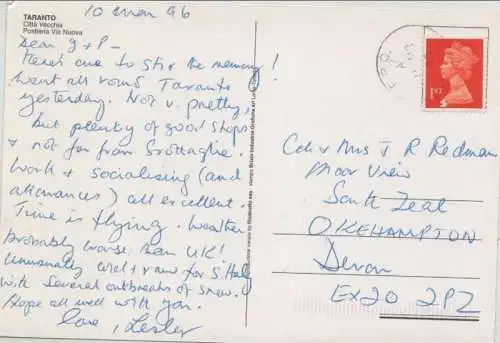 TARANTO
Città Vecchia
Postierla Via Nuova
10 Mar 96
Dear J & P -
Here's one to stir the memory!
Went all round Taranto
yesterday. Not v. pretty,
but plenty of good shops
& not far from Grottaglie.
Work & socialising (and
allowances) all excellent.
Time is flying. Weather
probably worse than UK!
Unusually cold & raw for S. Italy
with several outbreaks of snow.
Hope all well with you.
Love, Lesley
1ST
Col & Mrs J R Redman
Moor View
South Zeal
OKEHAMPTON
Devon
EX20 2PZ